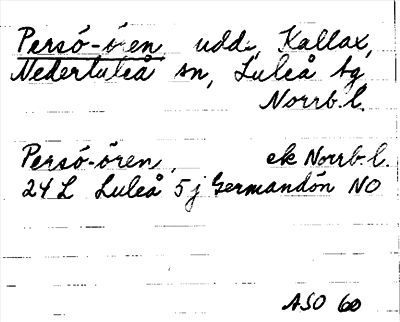 Persö-ören udde, Kallax,
Nederluleå sn, Luleå tg
Norrb. l.
Persö-ören, ek Norrb. l.
24 L Luleå 5 j Germandön NO
ASO 60